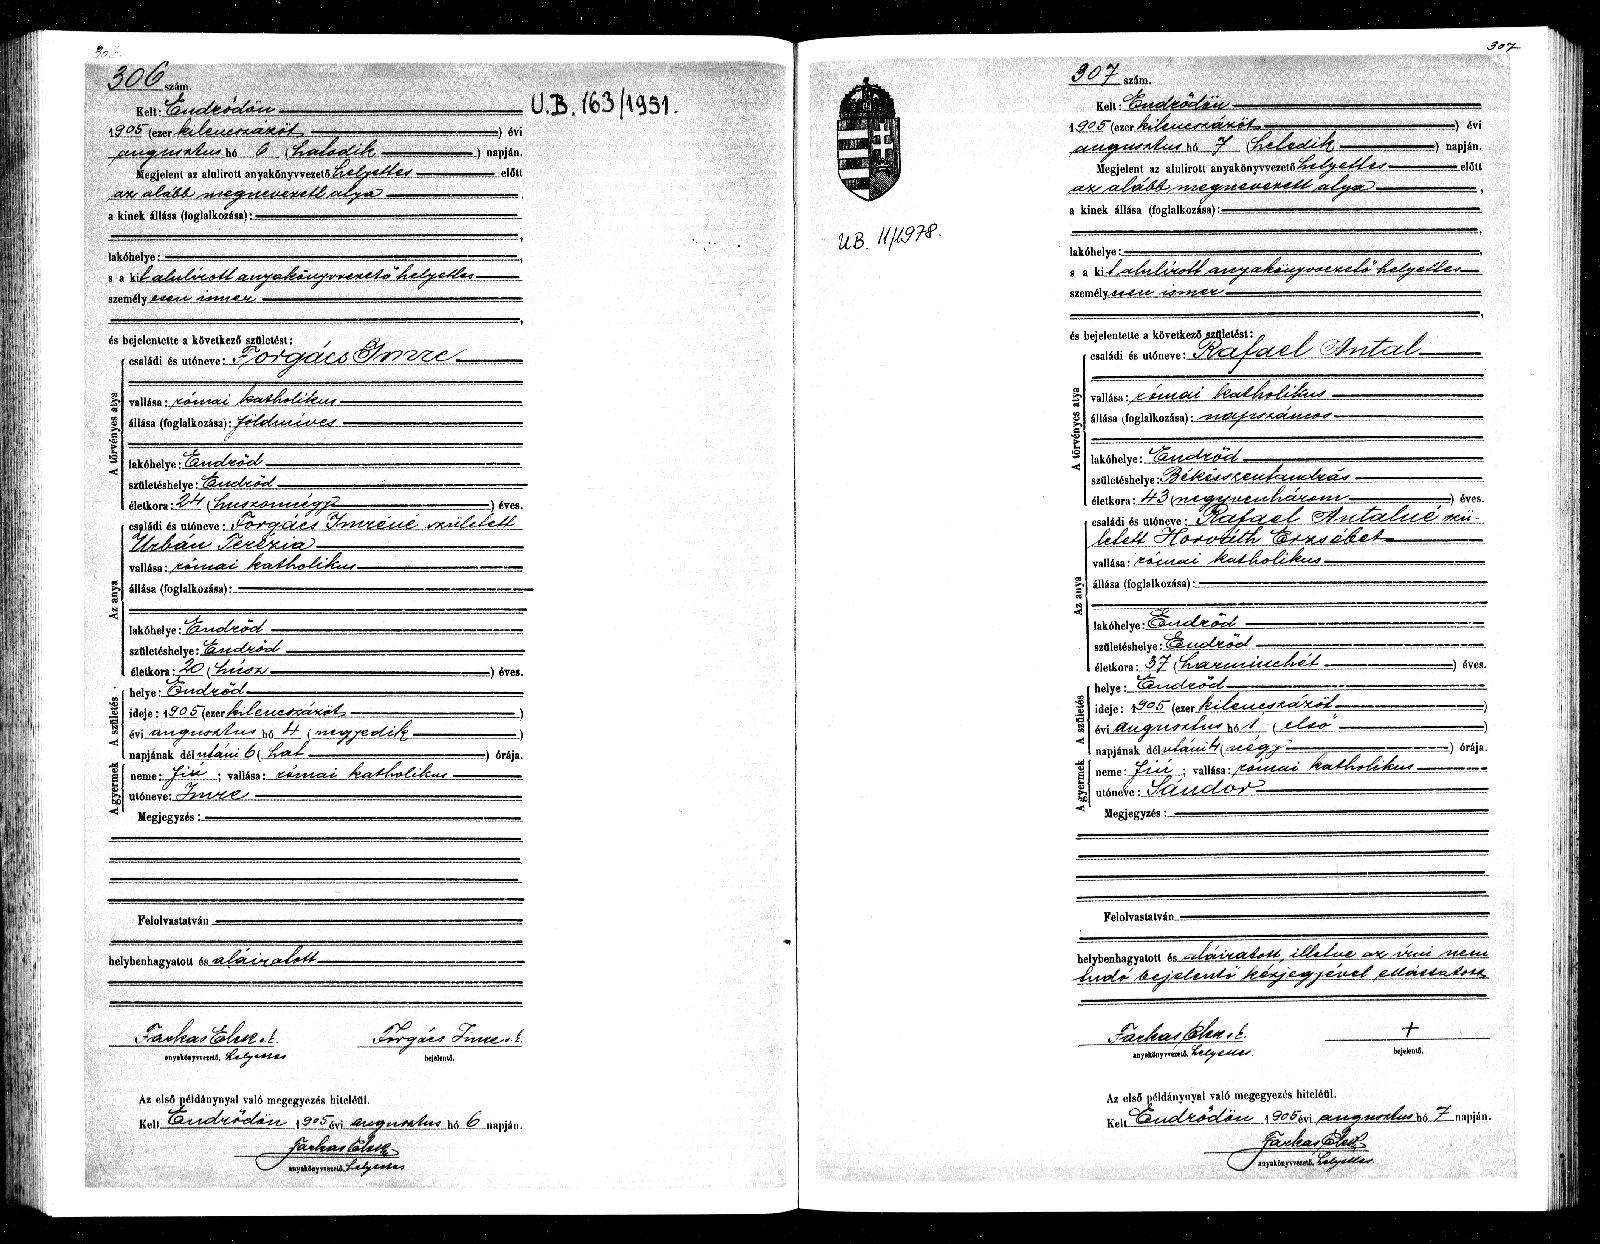 306
306 szám.
U.B. 163/1951.
Kelt: Endrődön
1905 (ezer kilenczszázöt) évi
augusztus hó 6 (hatodik) napján.
Megjelent az alulirott anyakönyvvezető helyettes előtt
az alább megnevezett atya,
a kinek állása (foglalkozása):
lakóhelye:
s a kit alulirott anyakönyvvezető helyettes
személyesen ismer
és bejelentette a következő születést:
A törvényes atya
családi és utóneve: Forgács Imre
vallása: római katholikus
állása (foglalkozása): földmíves
lakóhelye: Endrőd
születéshelye: Endrőd
életkora: 24 (huszonnégy) éves.
Az anya
családi és utóneve: Forgács Imréné született
Urbán Terézia
vallása: római katholikus
állása (foglalkozása):
lakóhelye: Endrőd
születéshelye: Endrőd
életkora: 20 (húsz) éves.
A születés
helye: Endrőd
ideje: 1905 (ezer kilenczszázöt)
évi augusztus hó 4 (negyedik)
napjának délutáni 6 (hat) órája.
A gyermek
neme: fiú; vallása: római katholikus
utóneve: Imre
Megjegyzés:
Felolvastatván
helybenhagyatott és aláiratott
Farkas Elek s.k. Forgács Imre s.k.
anyakönyvvezető. helyettes bejelentő.
Az első példánynyal való megegyezés hiteléül.
Kelt Endrődön 1905 évi augusztus hó 6 napján.
Farkas Elek
anyakönyvvezető. helyettes
307
307 szám.
UB. 11/1978.
Kelt: Endrődön
1905 (ezer kilenczszázöt) évi
augusztus hó 7 (hetedik) napján.
Megjelent az alulirott anyakönyvvezető helyettes előtt
az alább megnevezett atya,
a kinek állása (foglalkozása):
lakóhelye:
s a kit alulirott anyakönyvvezető helyettes
személyesen ismer
és bejelentette a következő születést:
A törvényes atya
családi és utóneve: Rafael Antal
vallása: római katholikus
állása (foglalkozása): napszámos
lakóhelye: Endrőd
születéshelye: Békésszentandrás
életkora: 43 (negyvenhárom) éves.
Az anya
családi és utóneve: Rafael Antalné szü-
letett Horváth Erzsébet
vallása: római katholikus
állása (foglalkozása):
lakóhelye: Endrőd
születéshelye: Endrőd
életkora: 37 (harminchét) éves.
A születés
helye: Endrőd
ideje: 1905 (ezer kilenczszázöt)
évi augusztus hó 1 (első)
napjának délutáni 4 (négy) órája.
A gyermek
neme: fiú; vallása: római katholikus
utóneve: Sándor
Megjegyzés:
Felolvastatván
helybenhagyatott és aláiratott, illetve az írni nem
tudó bejelentő kézjegyével elláttatott
Farkas Elek s.k. +
anyakönyvvezető. helyettes. bejelentő.
Az első példánynyal való megegyezés hiteléül.
Kelt Endrődön 1905 évi augusztus hó 7 napján.
Farkas Elek
anyakönyvvezető. helyettes.